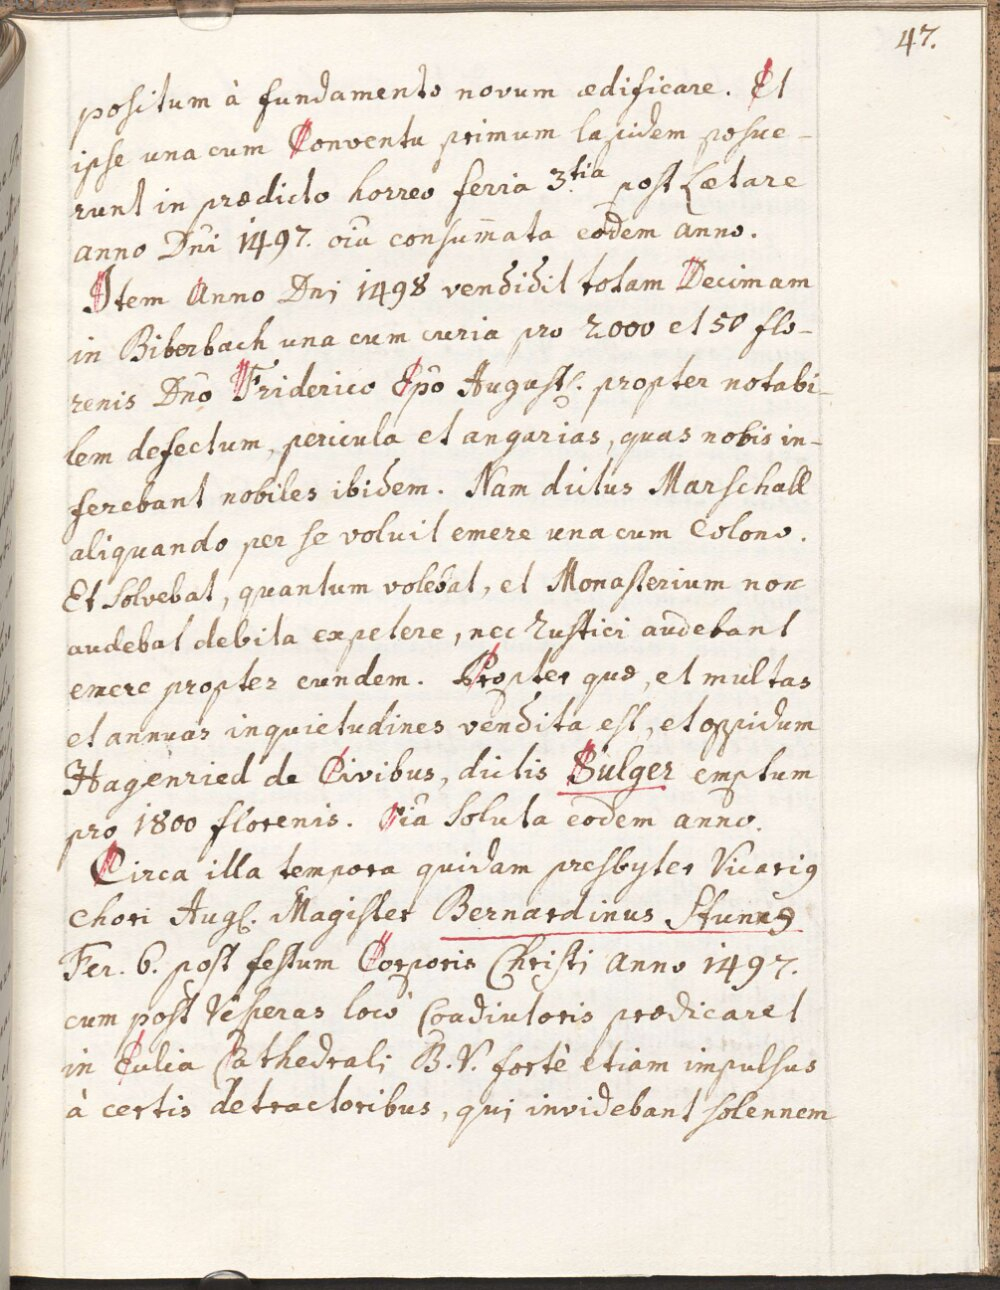 47.
positum à fundamento novum ædificare. Et
ipse una cum Conventu primum lapidem posue-
runt in prædicto horreo feria 3.tia post Lætare
anno Dn̄i 1497. oīa consum̄ata eōdem anno.
Item Anno Dnj 1498 vendidit totam Decimam
in Biberbach una cum curia pro 2000 et 50 flo-
renis Dn̄o Friderico Ep̄o August. propter notabi-
lem defectum, pericula et angarias, quas nobis in-
ferebant nobiles ibidem. Nam dictus Marschall
aliquando per se voluit emere una cum Colono.
Et solvebat, quantum volebat, et Monasterium non
audebat debita expetere, nec Rustici audebant
emere propter eundem. Propter quæ, et multas
et annuas inquietudines vendita est, et oppidum
Hagenried de Civibus, dictis Sulger emptum
pro 1800 florenis. oīa soluta eōdem anno.
Circa illa tempora quidam presbyter Vicarius
Chori Aug. Magister Bernardinus
Fer. 6. post festum Corporis Christi Anno 1497.
cum post Vesperas locô Coadiutoris prædicaret
in Cathedrali B. V. fortè etiam impulsus
à certis detractoribus, qui invidebant solennem